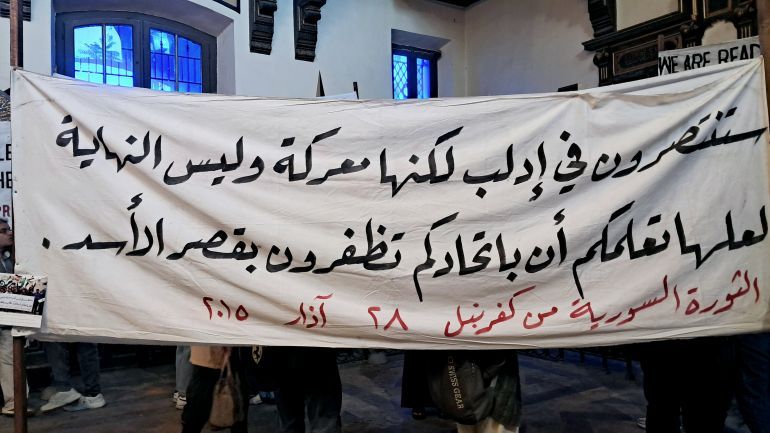 WE ARE READ
ستنتصرون في إدلب لكنها معركة وليس النهاية
لعلها تعلمكم أن باتحادكم تظفرون بقصر الأسد .
الثورة السورية من كفرنبل ٢٨ آذار ٢٠١٥
SWISS GEAR